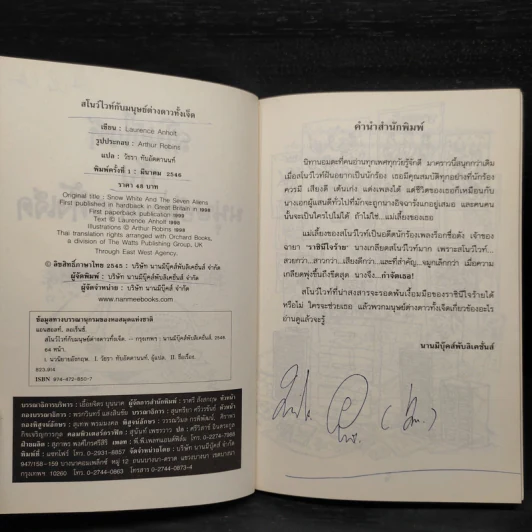 สโนว์ไวท์กับมนุษย์ต่างดาวทั้งเจ็ด
เขียน : Laurence Anholt
รูปประกอบ : Arthur Robins
แปล : วัชรา ทับอัตตานนท์
พิมพ์ครั้งที่ 1 : มีนาคม 2546
ราคา 48 บาท
Original title : Snow White And The Seven Aliens
First published in hardback in Great Britain in 1998
First paperback publication 1999
Text © Laurence Anholt 1998
Illustrations © Arthur Robins 1998
Thai translation rights arranged with Orchard Books,
a division of The Watts Publishing Group, UK
Through East West Agency.
© ลิขสิทธิ์ภาษาไทย 2545 : บริษัท นานมีบุ๊คส์พับลิเคชั่นส์ จำกัด
ผู้จัดพิมพ์ : บริษัท นานมีบุ๊คส์พับลิเคชั่นส์ จำกัด
ผู้จัดจำหน่าย : บริษัท นานมีบุ๊คส์ จำกัด
www.nanmeebooks.com
ข้อมูลทางบรรณานุกรมของหอสมุดแห่งชาติ
แอนฮอลท์, ลอเร็นซ์.
สโนว์ไวท์กับมนุษย์ต่างดาวทั้งเจ็ด. -- กรุงเทพฯ : นานมีบุ๊คส์พับลิเคชั่นส์, 2546
64 หน้า.
1. นวนิยายอังกฤษ. I. วัชรา ทับอัตตานนท์, ผู้แปล. II. ชื่อเรื่อง.
823.914
ISBN 974-472-850-7
คำนำสำนักพิมพ์
นิทานอมตะที่คนอ่านทุกเพศทุกวัยรู้จักดี มาคราวนี้สนุกกว่าเดิม
เมื่อสโนว์ไวท์ฝันอยากเป็นนักร้อง เธอมีคุณสมบัติทุกอย่างที่นักร้อง
ควรมี เสียงดี เต้นเก่ง แต่งเพลงได้ แต่ชีวิตของเธอก็เหมือนกับ
นางเอกผู้แสนดีทั่วไปที่มักจะถูกนางอิจฉารังแกอยู่เสมอ และคนคน
นั้นจะเป็นใครไปไม่ได้ ถ้าไม่ใช่...แม่เลี้ยงของเธอ
แม่เลี้ยงของสโนว์ไวท์เป็นอดีตนักร้องเพลงร็อกชื่อดัง เจ้าของ
ฉายา "ราชินีใจร้าย" นางเกลียดสโนว์ไวท์มาก เพราะสโนว์ไวท์...
สวยกว่า...สาวกว่า...เสียงดีกว่า...และที่สำคัญ...จมูกเล็กกว่า เมื่อความ
เกลียดพุ่งขึ้นถึงขีดสุด นางจึง...กำจัดเธอ!
สโนว์ไวท์ที่น่าสงสารจะรอดพ้นเงื้อมมือของราชินีใจร้ายได้
หรือไม่ ใครจะช่วยเธอ แล้วพวกมนุษย์ต่างดาวทั้งเจ็ดเกี่ยวข้องอะไร
อ่านดูแล้วจะรู้
นานมีบุ๊คส์พับลิเคชั่นส์